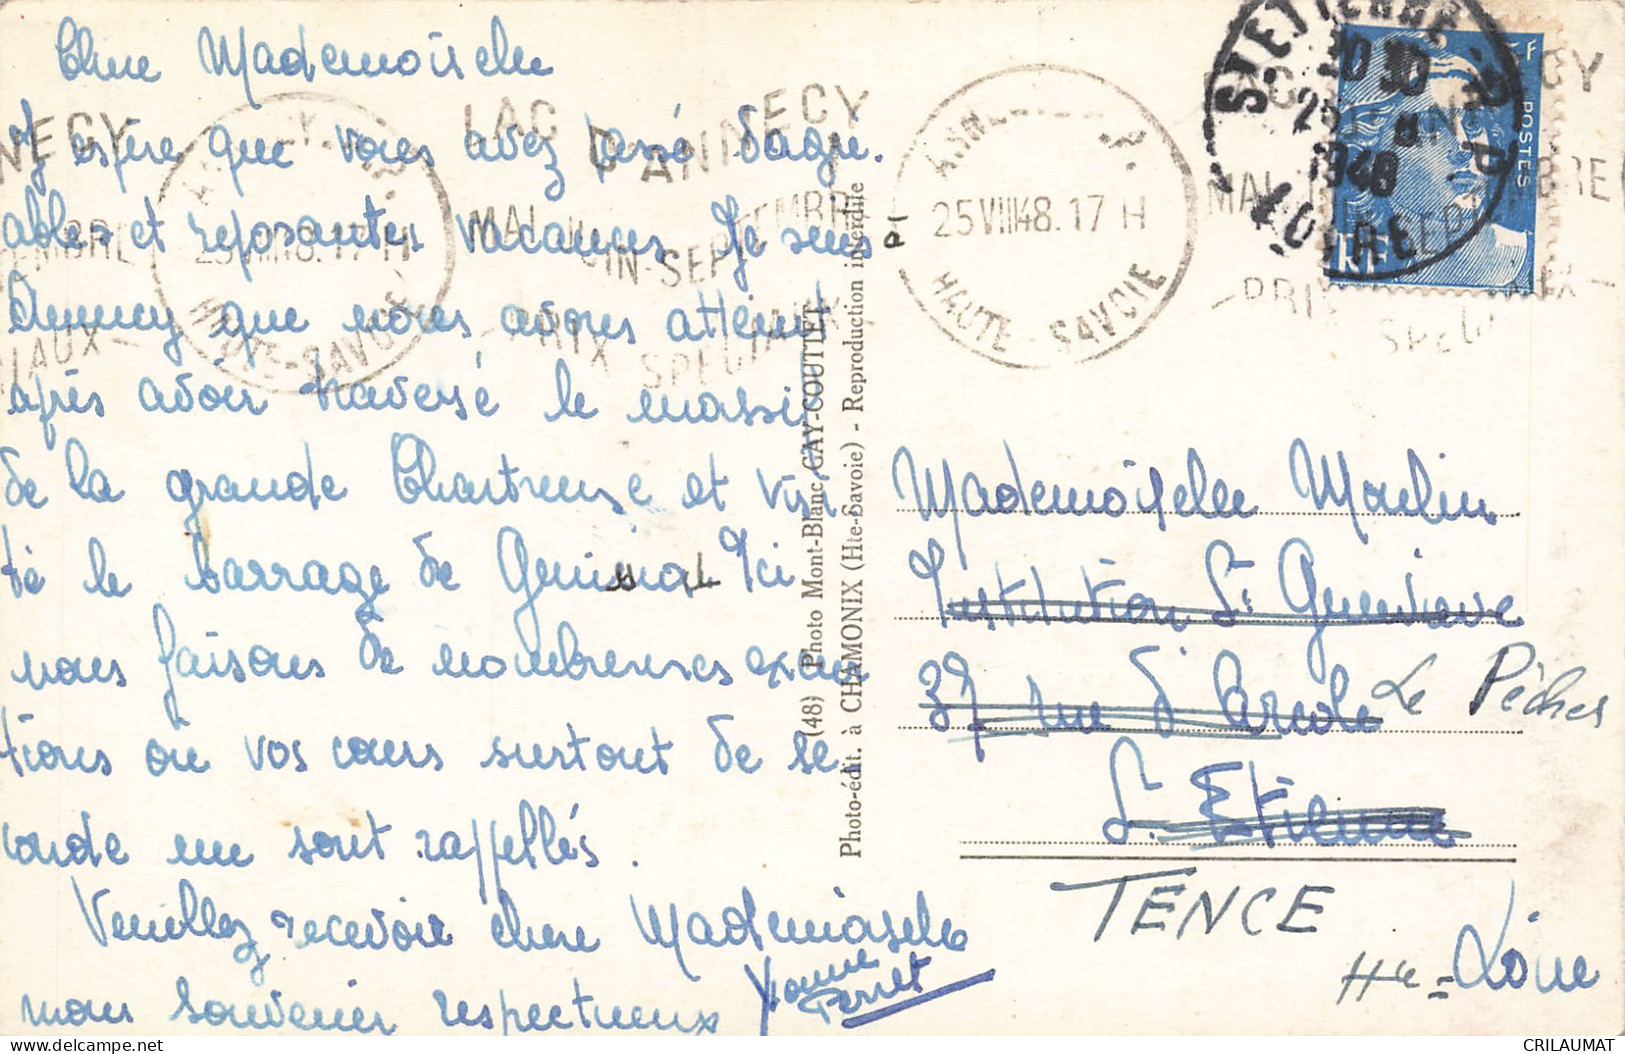 Chère Mademoiselle
J'espère que vous avez passé d'agré-
ables et reposantes vacances. Je suis
Annecy que nous avons atteint
après avoir traversé le massif
de la grande Chartreuse et visi
té le barrage de Génissiat Ici
nous faisons de nombreuses excur
tions où vos cours surtout de se
conde me sont rappellés.
Veuillez recevoir chère Mademoiselle
mon souvenir respectueux
Yvonne
Perret
(48) Photo Mont-Blanc GAY-COUTTET
Photo-édit. à CHAMONIX (Hte-Savoie) - Reproduction interdite
LAC D'ANNECY
MAI JUIN-SEPTEMBRE
- PRIX SPECIAUX -
ANNECY R.P.
25 VIII 48. 17 H
HAUTE-SAVOIE
ANNECY R.P.
25 VIII 48. 17 H
HAUTE-SAVOIE
ST ETIENNE R.P.
1948
LOIRE
POSTES
RF
Mademoiselle Moulin
Institution Ste Geneviève
37 rue d'Arcole
Le Pèches
St. Etienne
TENCE
Hte-Loire
delcampe.net
CRILAUMAT